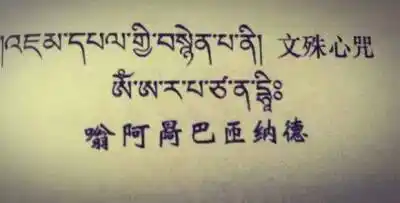 །འཇམ་དཔལ་གྱི་བསྙེན་པ་ནི། 文殊心咒
ཨོཾ་ཨ་ར་པ་ཙ་ན་དྷཱིཿ
嗡阿喎巴匝纳德